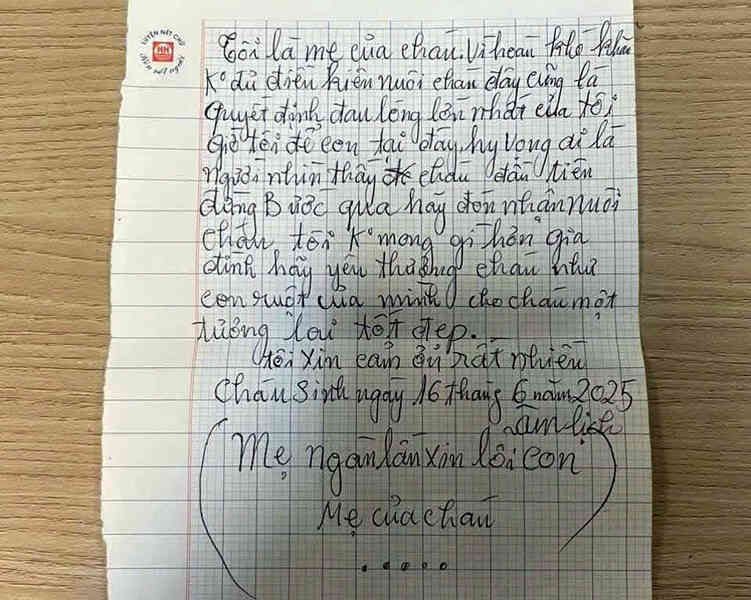 LUYỆN NÉT CHỮ
HH
RÈN NẾT NGƯỜI
Tôi là mẹ của cháu. Vì hoàn khó khăn
K° đủ điều kiện nuôi cháu đây cũng là
quyết định đau lòng lớn nhất của tôi
Giờ tôi để con tại đây, hy vong ai là
người nhìn thấy cháu đầu tiên
đừng Bước qua hãy đón nhận nuôi
cháu tôi K° mong gì hơn gia
đình hãy yêu thương cháu như
con ruột của mình cho cháu một
tương lai tốt đẹp.
tôi xin cảm ơn rất nhiều
Cháu Sinh ngày 16 tháng 6 năm 2025
âm lịch
(Mẹ ngàn lần xin lỗi con)
Mẹ của cháu
.....